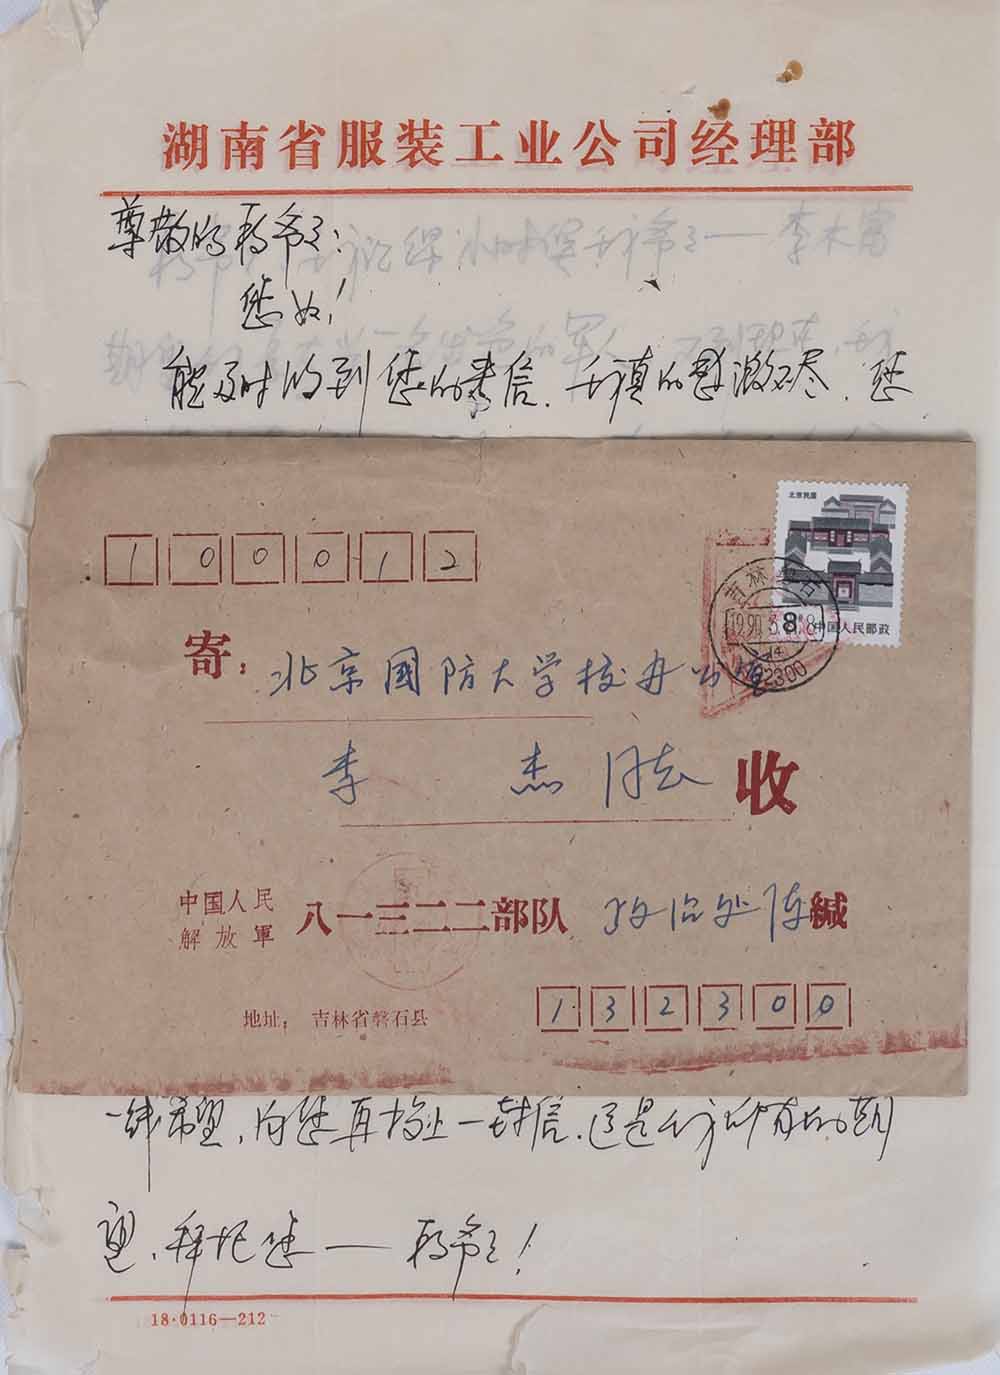 湖南省服装工业公司经理部
尊敬的
您好！
能及时收到您的来信，我真的感激不尽，您
100012
北京民居
8 中国人民邮政
吉林
1990
132300
寄：北京国防大学校办公室
李 杰 同志 收
中国人民解放軍 八一三二二部队 政治处 陈 缄
地址：吉林省磐石县
132300
一线希望，向您再抄上一封信，这是我所有的期
望，拜托您——
18·0116—212